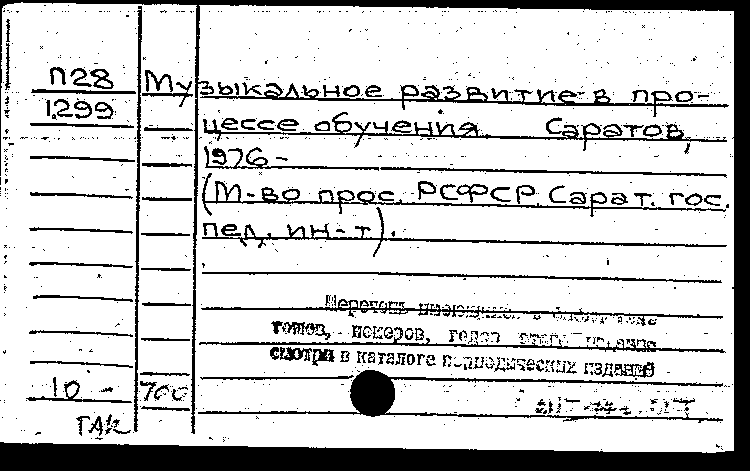 П28
1299
Музыкальное развитие в про-
цессе обучения. Саратов,
1976-
(М-во прос. РСФСР. Сарат. гос.
пед. ин-т).
Перечень имеющихся в библиотеке
томов, номеров, годов этого издания
смотри в каталоге периодических изданий
10 - 700
ГАК